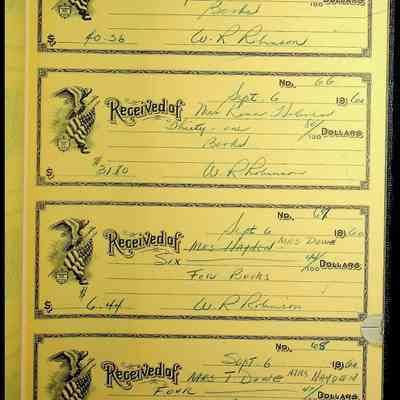 /100 DOLLARS
Books
$ 40.36 W. R. Robinson
No. 66
Sept. 6 1960
Received of Mrs
Thirty-one 80/100 DOLLARS
Books
$ 31 80 W R Robinson
No. 67
Sept 6 1960
Received of Mrs Hayden MRS DOWE
Six 44/100 DOLLARS
FOR Books
$ 6.44 W. R. Robinson
No. 68
Sept 6 1960
Received of MRS T DOWE MRS HAYDEN
FOUR
DOLLARS